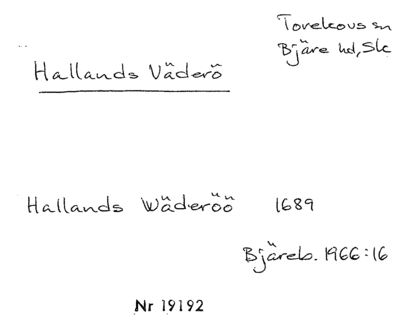 Torekovs sn
Bjäre hd, Sk
Hallands Väderö
Hallands Wäderöö 1689
Bjäreb. 1966:16
Nr 19192